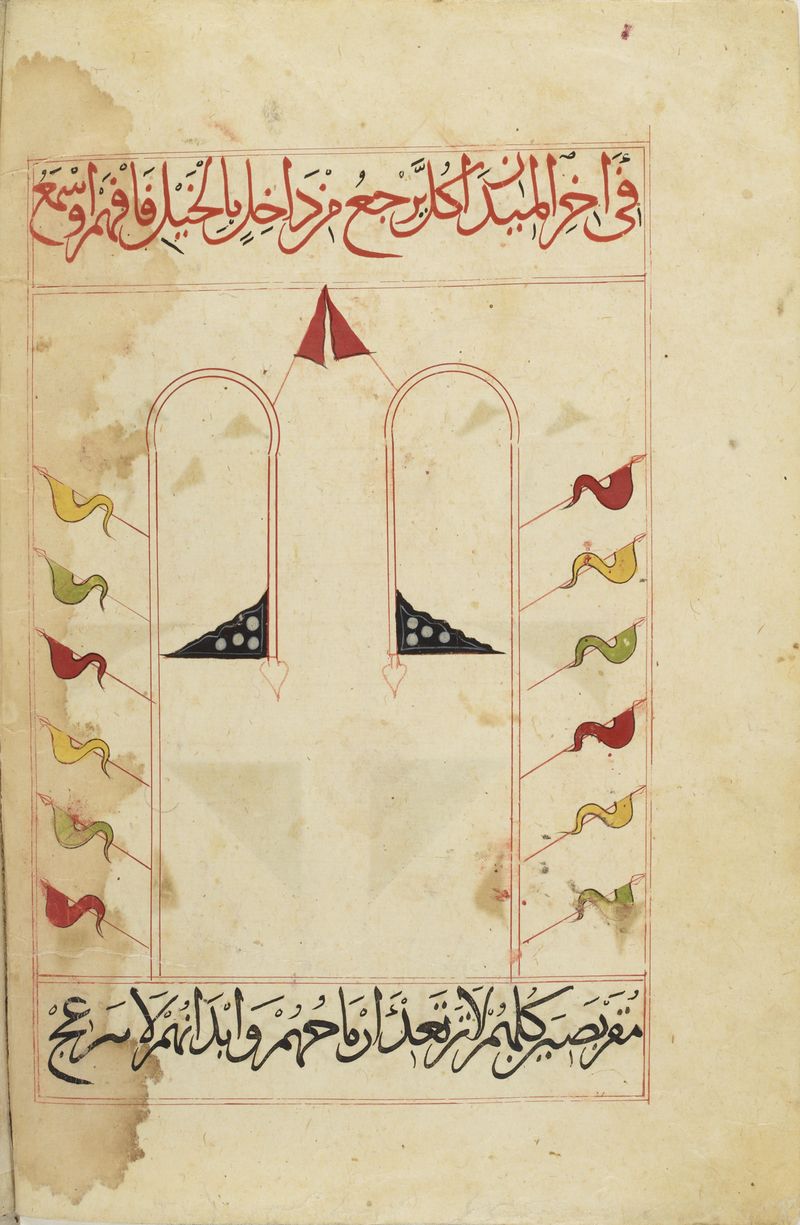 في اخر الميدان كل يرجع من داخل بالخيل فافهم واسمع
مقربصين كلهم لا ترتعد ارماحهم وابدانهم لا تنزعج